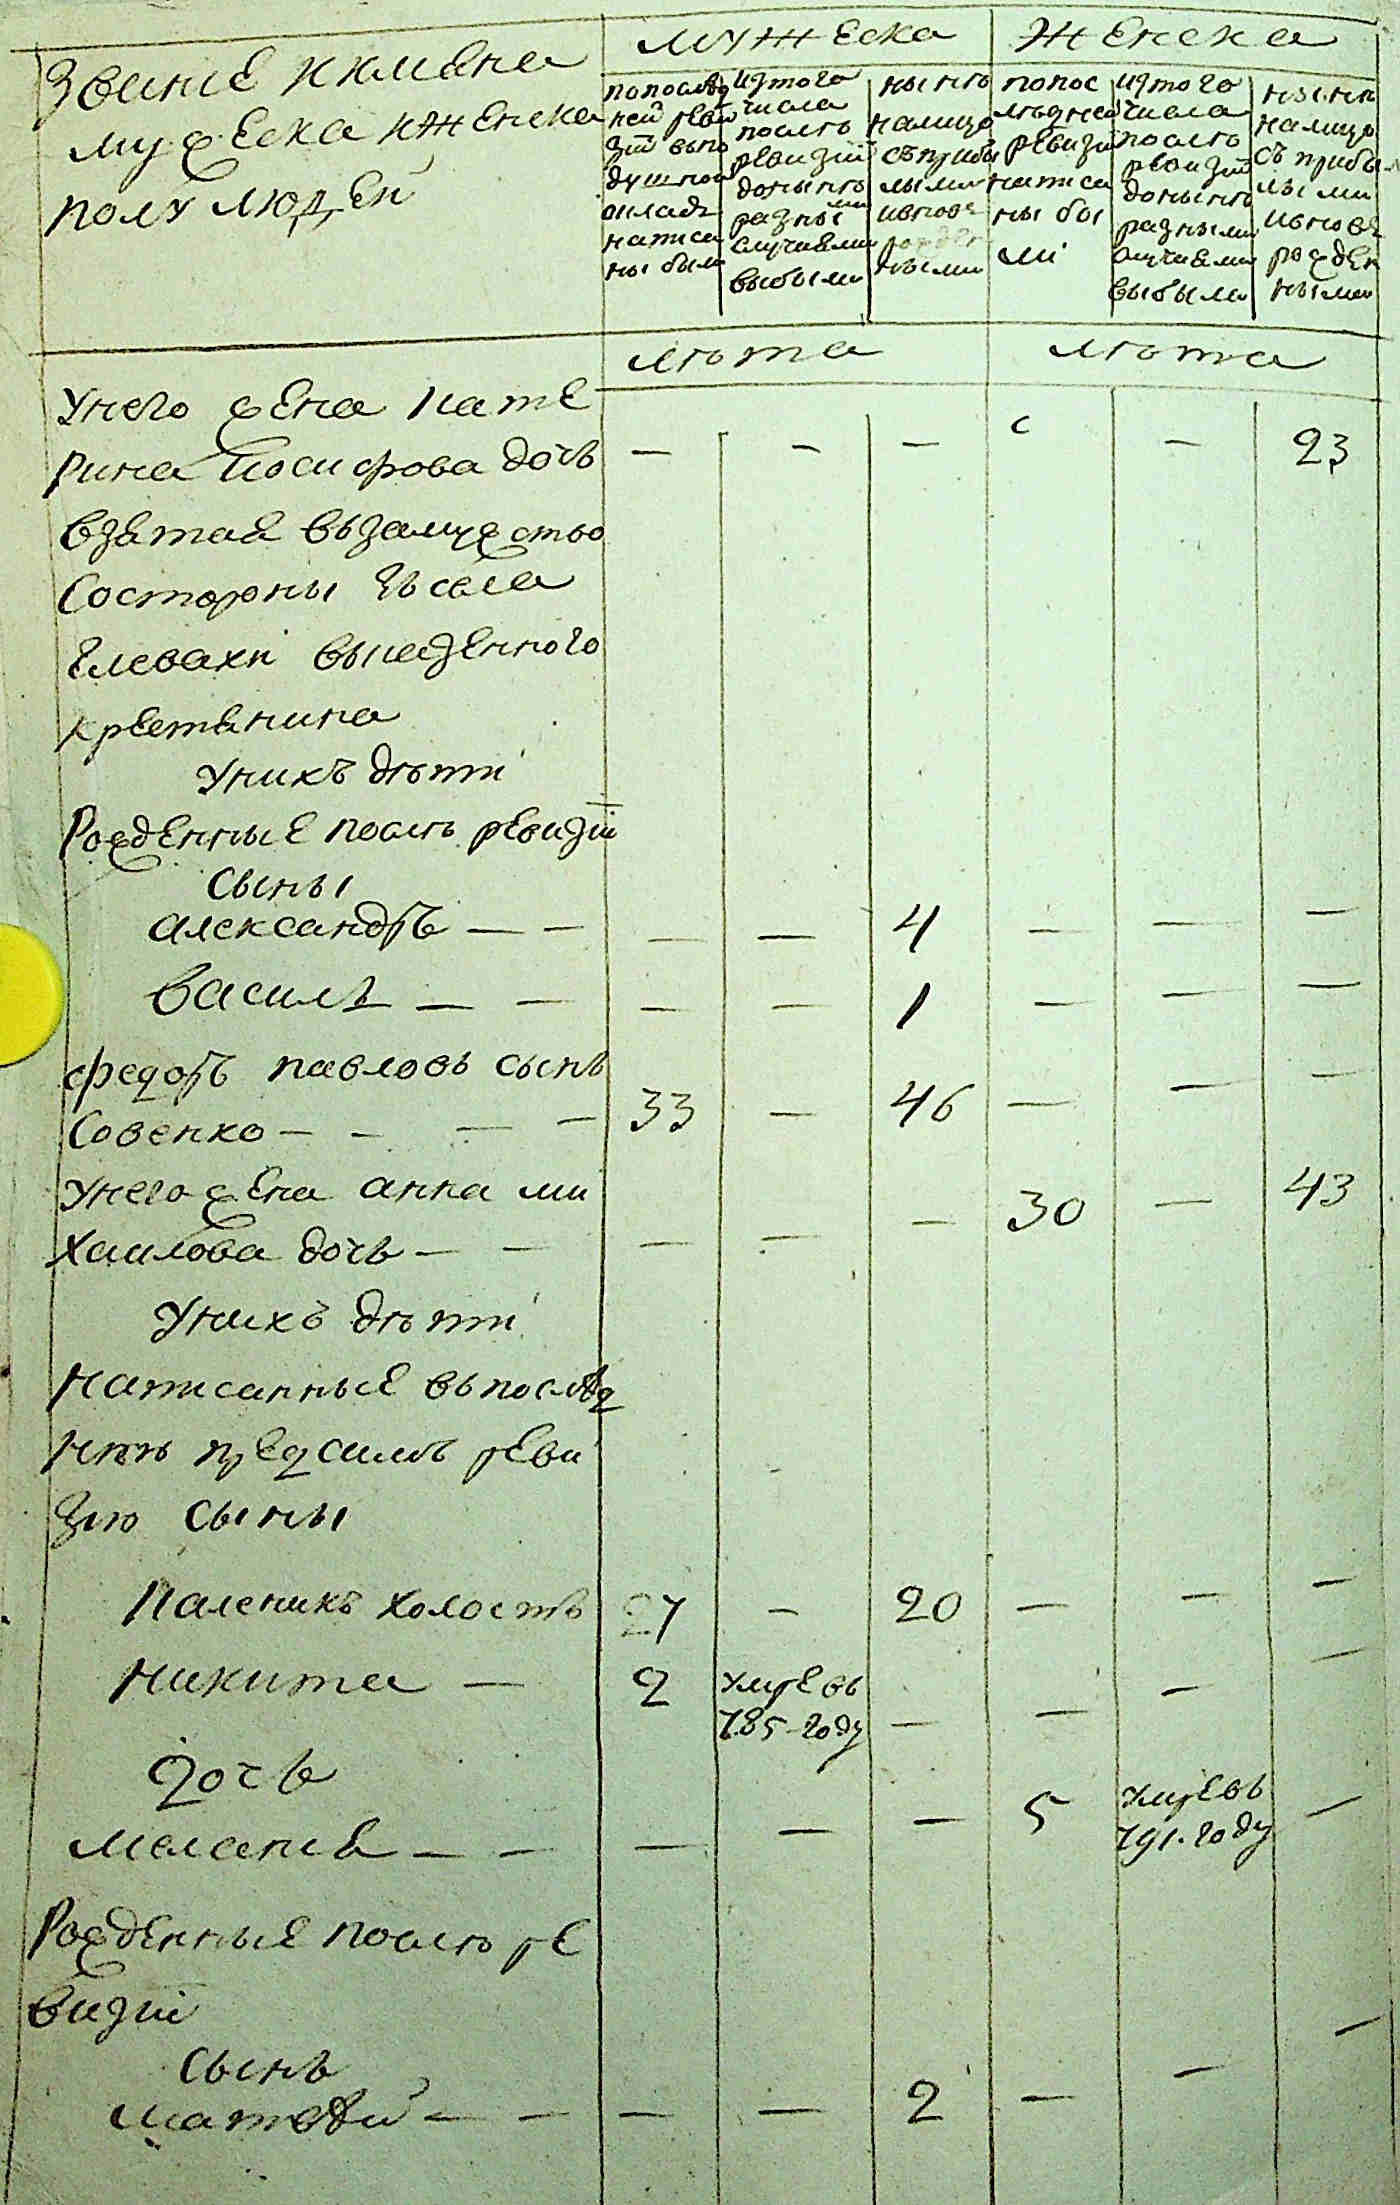 Званїе и имена
мужеска и женска
полу людей
мужеска
женска
по послѣд
ней реви
зїи въ по
душной
окладъ
написа
ны были
из того
числа
послѣ
ревизїи
до нынѣ
разными
случаями
выбыли
нынѣ
налицо
съ прибы
лыми
и вновь
рожден
ными
по пос
лѣдней
ревизи
написа
ны бы
лі
из того
числа
послѣ
ревизїи
до нынѣ
разными
случаями
выбыли
нынѣ
налицо
съ прибы
лыми
и вновь
рожден
ными
лѣта
лѣта
У него жена Кате
рина Иосифова дочь — — — — 23
взятая въ замужство
со стороны зъ села
Глевахи
крестянина
У нихъ дѣти
Рожденные послѣ ревизїи
сыны
Александръ — — — — 4 — — —
Василь — — — — 1 — — —
Федоръ Павловъ сынъ
Совенко — — — — 33 — 46 — — —
У него жена Анна Ми
хаилова дочь — — — — — 30 — 43
У нихъ дѣти
Написанные въ послѣд
нѣй предъ симъ реви
зїю сыны
Каленикъ холостъ 7 — 20 — — —
Никита — 2 умре въ
785 году — — — —
дочь
Меланя — — — — — 5 умре въ
791 году —
Рожденные послѣ ре
визїи
сынъ
Матвѣй — — — — 2 — — —